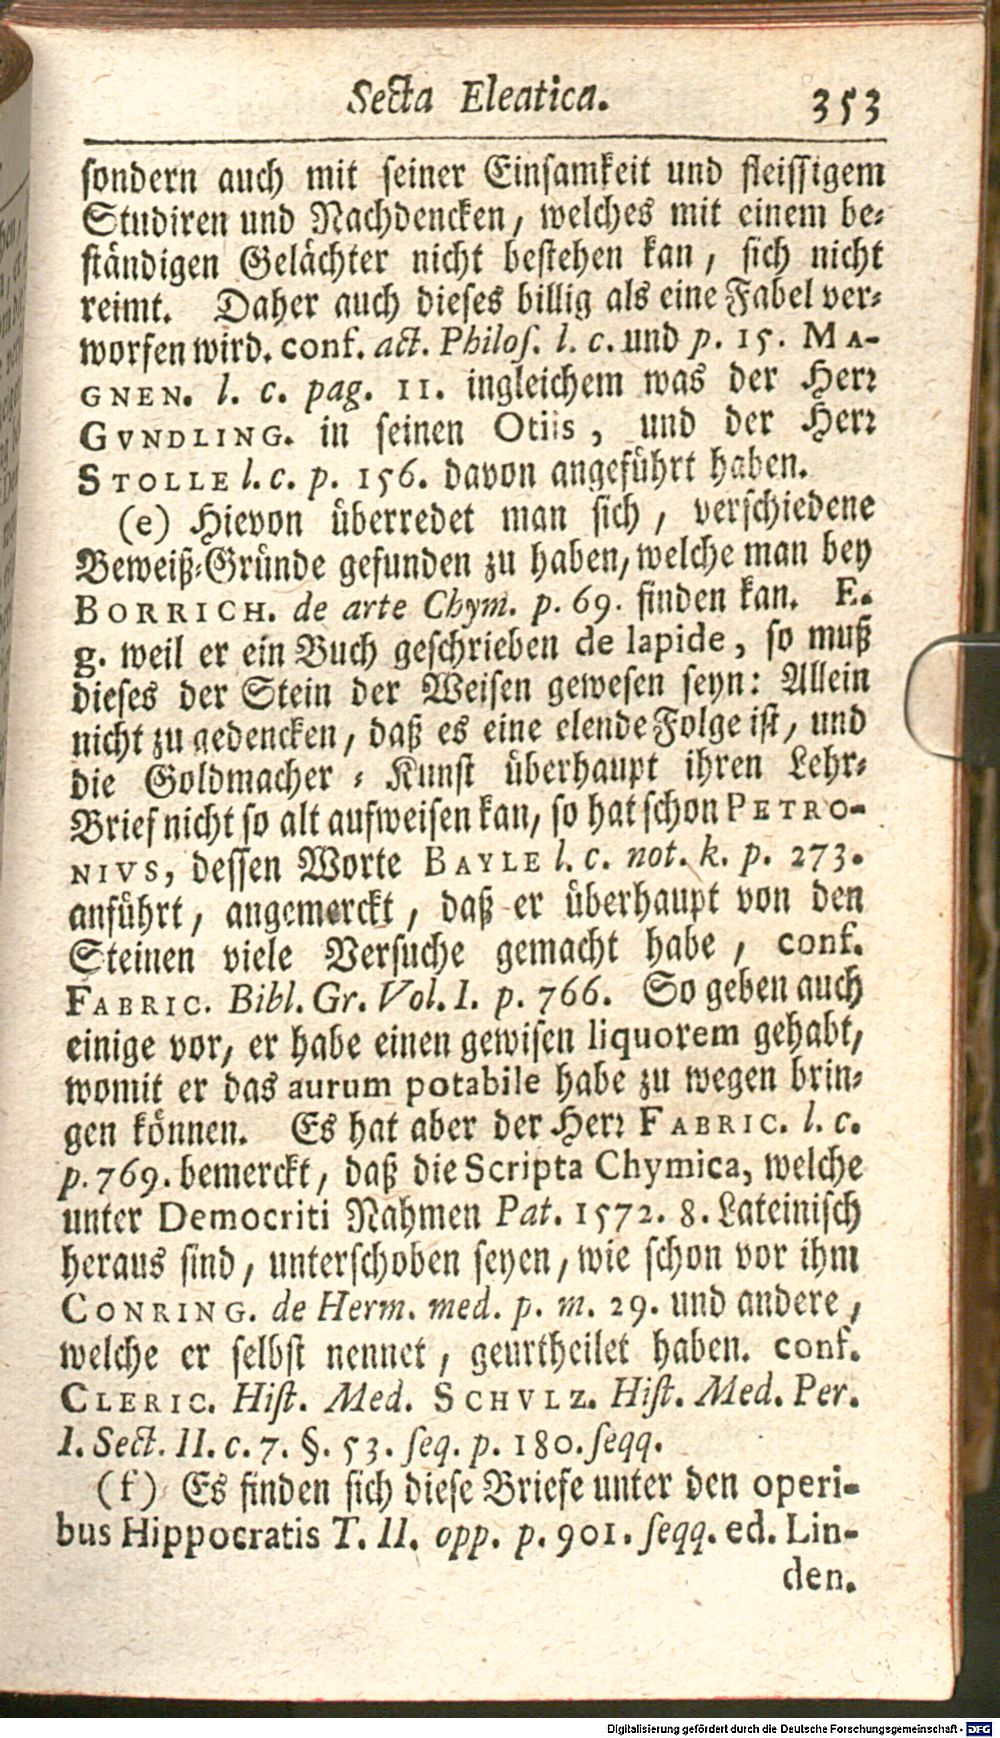 Secta Eleatica. 353
sondern auch mit seiner Einsamkeit und fleissigem
Studiren und Nachdencken, welches mit einem be-
ständigen Gelächter nicht bestehen kan, sich nicht
reimt. Daher auch dieses billig als eine Fabel ver-
worfen wird. conf. act. Philos. l. c. und p. 15. MA-
GNEN. l. c. pag. 11. ingleichem was der Herr
GVNDLING. in seinen Otiis, und der Herr
STOLLE l. c. p. 156. davon angeführt haben.
(e) Hievon überredet man sich, verschiedene
Beweiß-Gründe gefunden zu haben, welche man bey
BORRICH. de arte Chym. p. 69. finden kan. E.
g. weil er ein Buch geschrieben de lapide, so muß
dieses der Stein der Weisen gewesen seyn: Allein
nicht zu gedencken, daß es eine elende Folge ist, und
die Goldmacher-Kunst überhaupt ihren Lehr-
Brief nicht so alt aufweisen kan, so hat schon PETRO-
NIVS, dessen Worte BAYLE l. c. not. k. p. 273.
anführt, angemerckt, daß er überhaupt von den
Steinen viele Versuche gemacht habe, conf.
FABRIC. Bibl. Gr. Vol. I. p. 766. So geben auch
einige vor, er habe einen gewisen liquorem gehabt,
womit er das aurum potabile habe zu wegen brin-
gen können. Es hat aber der Herr FABRIC. l. c.
p. 769. bemerckt, daß die Scripta Chymica, welche
unter Democriti Nahmen Pat. 1572. 8. Lateinisch
heraus sind, unterschoben seyen, wie schon vor ihm
CONRING. de Herm. med. p. m. 29. und andere,
welche er selbst nennet, geurtheilet haben. conf.
CLERIC. Hist. Med. SCHVLZ. Hist. Med. Per.
I. Sect. II. c. 7. §. 53. seq. p. 180. seqq.
(f) Es finden sich diese Briefe unter den operi-
bus Hippocratis T. II. opp. p. 901. seqq. ed. Lin-
den.
Digitalisierung gefördert durch die Deutsche Forschungsgemeinschaft - DFG